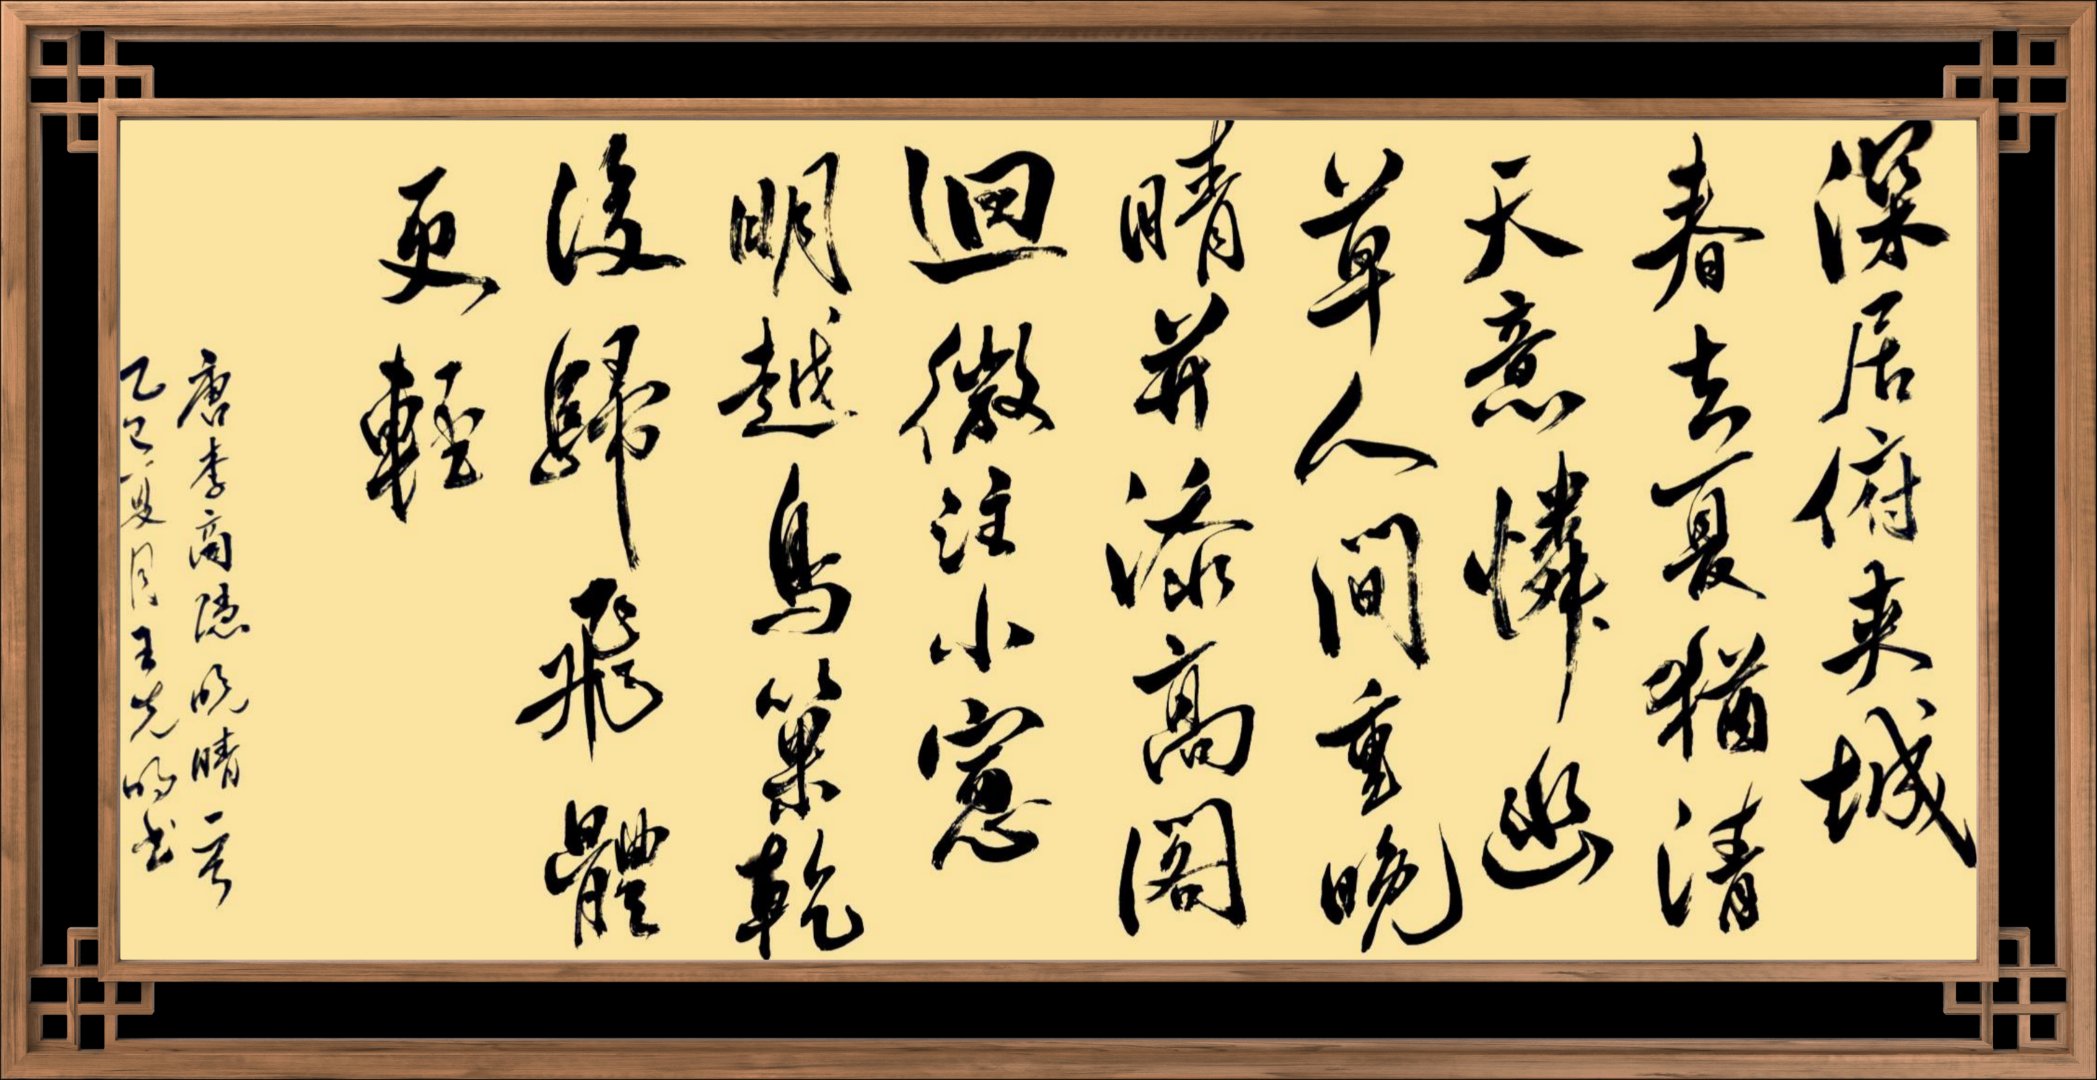 深居俯夾城
春去夏猶清
天意憐幽
草人間重晚
晴并添高閣
迴微注小窻
明越鳥巢乾
後歸飛體
更輕
唐李商隐晚晴一首
乙巳夏月王先明书